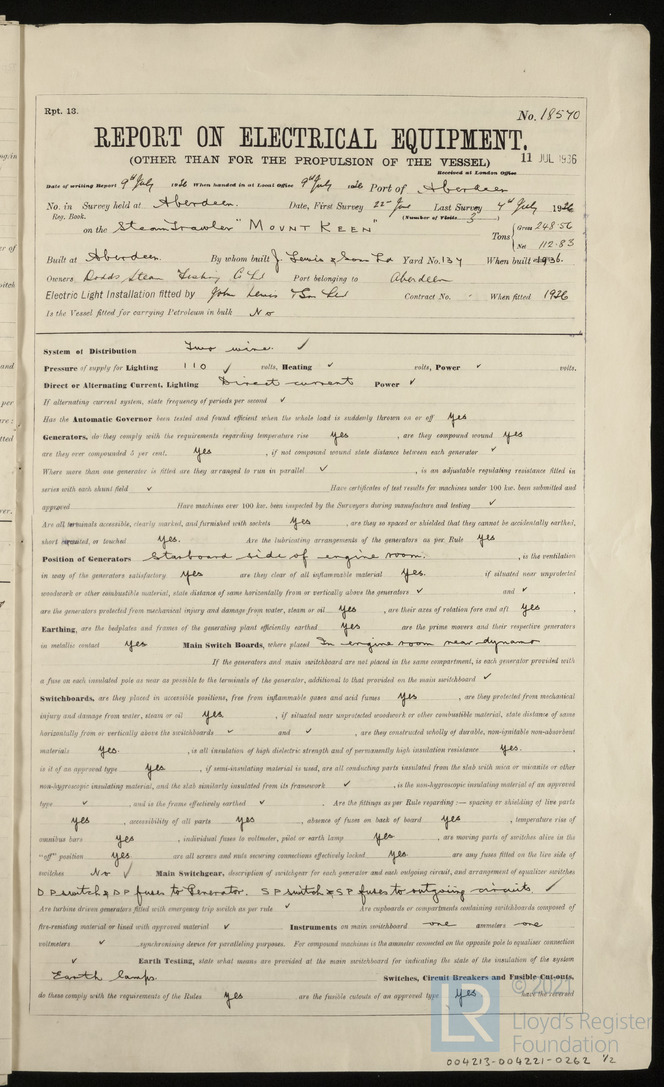 Rpt. 13.
No. 18570
REPORT ON ELECTRICAL EQUIPMENT.
(OTHER THAN FOR THE PROPULSION OF THE VESSEL)
11 JUL 1936
Received at London Office
Date of writing Report 9th July 1936 When handed in at Local Office 9th July 1936 Port of Aberdeen
No. in Survey held at Aberdeen. Date, First Survey 22nd June Last Survey 4th July 1936
Reg. Book. (Number of Visits 3)
on the Steam Trawler "MOUNT KEEN" Tons { Gross 248.56
Net 112.83
Built at Aberdeen. By whom built J. Lewis & Sons Ld Yard No. 134 When built 1936.
Owners Dodds Steam Fishing C Ld Port belonging to Aberdeen
Electric Light Installation fitted by John Lewis & Son Ld Contract No. - When fitted 1936
Is the Vessel fitted for carrying Petroleum in bulk No
System of Distribution Two wire. ✓
Pressure of supply for Lighting 110 ✓ volts, Heating ✓ volts, Power ✓ volts.
Direct or Alternating Current, Lighting Direct current Power ✓
If alternating current system, state frequency of periods per second ✓
Has the Automatic Governor been tested and found efficient when the whole load is suddenly thrown on or off yes
Generators, do they comply with the requirements regarding temperature rise yes, are they compound wound yes
are they over compounded 5 per cent. yes, if not compound wound state distance between each generator ✓
Where more than one generator is fitted are they arranged to run in parallel ✓, is an adjustable regulating resistance fitted in
series with each shunt field ✓ Have certificates of test results for machines under 100 kw. been submitted and
approved Have machines over 100 kw. been inspected by the Surveyors during manufacture and testing ✓
Are all terminals accessible, clearly marked, and furnished with sockets yes, are they so spaced or shielded that they cannot be accidentally earthed,
short circuited, or touched yes. Are the lubricating arrangements of the generators as per Rule yes
Position of Generators Starboard side of engine room., is the ventilation
in way of the generators satisfactory yes are they clear of all inflammable material yes. if situated near unprotected
woodwork or other combustible material, state distance of same horizontally from or vertically above the generators ✓ and ✓,
are the generators protected from mechanical injury and damage from water, steam or oil yes, are their axes of rotation fore and aft yes,
Earthing, are the bedplates and frames of the generating plant efficiently earthed yes are the prime movers and their respective generators
in metallic contact yes Main Switch Boards, where placed In engine room near dynamo
If the generators and main switchboard are not placed in the same compartment, is each generator provided with
a fuse on each insulated pole as near as possible to the terminals of the generator, additional to that provided on the main switchboard ✓
Switchboards, are they placed in accessible positions, free from inflammable gases and acid fumes yes, are they protected from mechanical
injury and damage from water, steam or oil yes., if situated near unprotected woodwork or other combustible material, state distance of same
horizontally from or vertically above the switchboards ✓ and ✓, are they constructed wholly of durable, non-ignitable non-absorbent
materials yes., is all insulation of high dielectric strength and of permanently high insulation resistance yes.,
is it of an approved type yes, if semi-insulating material is used, are all conducting parts insulated from the slab with mica or micanite or other
non-hygroscopic insulating material, and the slab similarly insulated from its framework ✓, is the non-hygroscopic insulating material of an approved
type ✓, and is the frame effectively earthed ✓. Are the fittings as per Rule regarding:— spacing or shielding of live parts
yes, accessibility of all parts yes, absence of fuses on back of board yes, temperature rise of
omnibus bars yes, individual fuses to voltmeter, pilot or earth lamp yes, are moving parts of switches alive in the
"off" position yes are all screws and nuts securing connections effectively locked yes are any fuses fitted on the live side of
switches No ✓ Main Switchgear, description of switchgear for each generator and each outgoing circuit, and arrangement of equalizer switches
D P switch & D P fuses to Generator. S P switch & S P fuses to outgoing circuits. ✓
Are turbine driven generators fitted with emergency trip switch as per rule ✓ Are cupboards or compartments containing switchboards composed of
fire-resisting material or lined with approved material ✓ Instruments on main switchboard one ammeters one
voltmeters ✓ synchronising device for paralleling purposes. For compound machines is the ammeter connected on the opposite pole to equaliser connection
✓ Earth Testing, state what means are provided at the main switchboard for indicating the state of the insulation of the system
Earth lamps Switches, Circuit Breakers and Fusible Cut-outs,
do these comply with the requirements of the Rules yes are the fusible cutouts of an approved type yes have the reversed
© 2021
LR
Lloyd's Register
Foundation
004213-004221-0262 1/2